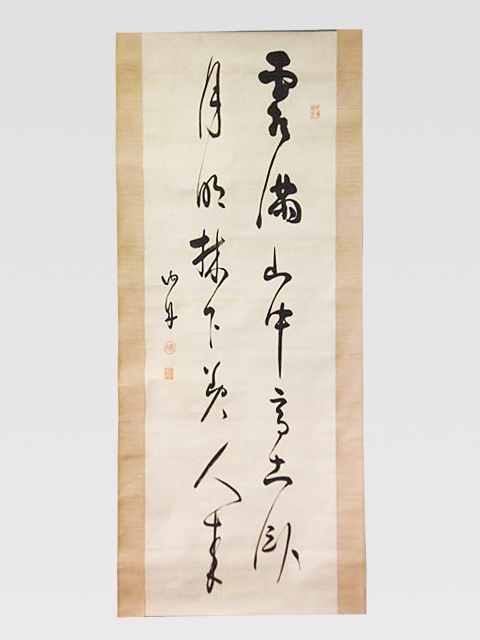 雪満山中高士臥
月明林下美人来